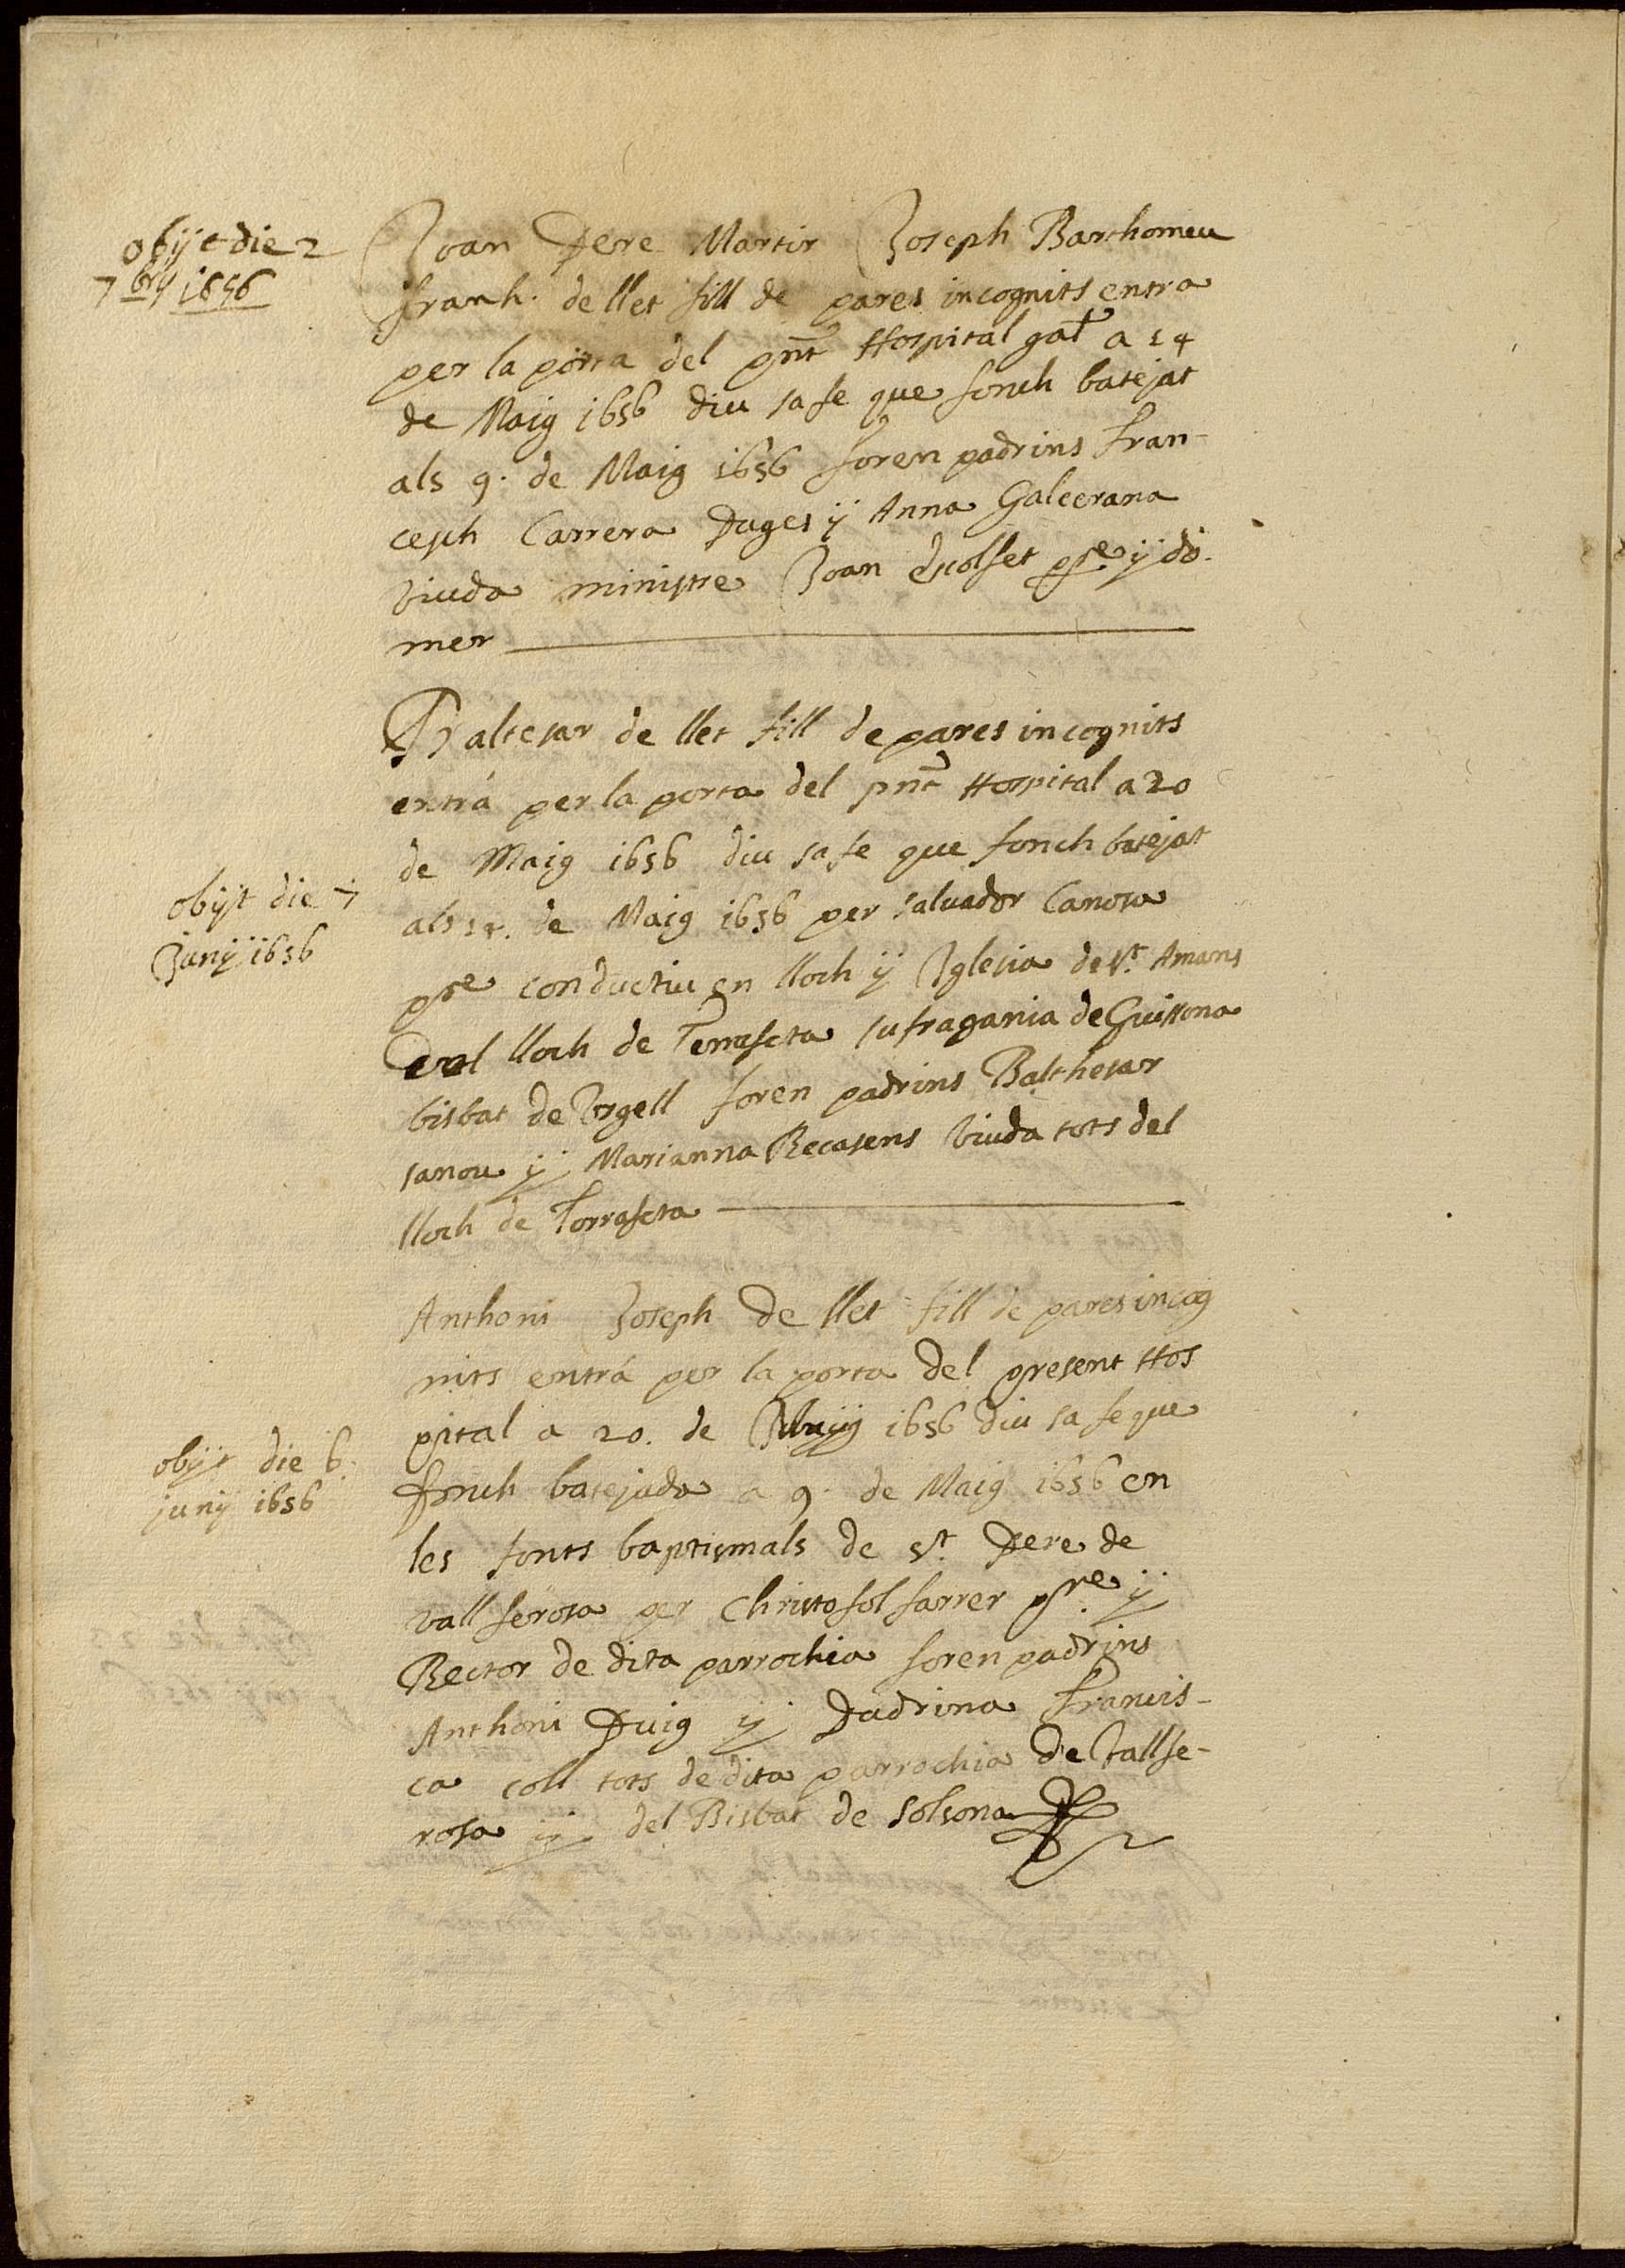 obijt die 2
7bris 1656
Joan Pere Martir Joseph Barthomeu
franch. de llet fill de pares incognits entra
per la porta del pnt Hospital gñal a 14
de Maig 1656 diu sa fe que fonch batejat
als 9. de Maig 1656 foren padrins Fran-
cesch Carrera Pages ÿ Anna Galcerana
viuda ministre Joan Escolset pre. ÿ do-
mer
Baltesar de llet fill de pares incognits
entrá per la porta del pnt Hospital a 20
de Maig 1656 diu sa fe que fonch batejat
obijt die 7
Junÿ 1656
als 14. de Maig 1656 per salvador Canosa
pre conductiu en lloch ÿ Iglesia de St. Amans
del lloch de Terraseta sufragania de Guissona
bisbat de Vrgell foren padrins Balthesar
sanou ÿ Marianna Recasens viuda tots del
lloch de Torraseta
Anthoni Joseph de llet fill de pares incog
nits entrá per la porta del present Hos
pital a 20. de 1656 diu sa fe que
obijt die 6.
junÿ 1656
fonch batejada a 9. de Maig 1656 en
les fonts baptismals de St. Pere de
vallferosa per Christofol farrer pre. ÿ
Rector de dita parrochia foren padrins
Anthoni Puig ÿ Padrina Francis-
ca coll tots de dita parrochia de Vallfe-
rosa ÿ del Bisbat de Solsona